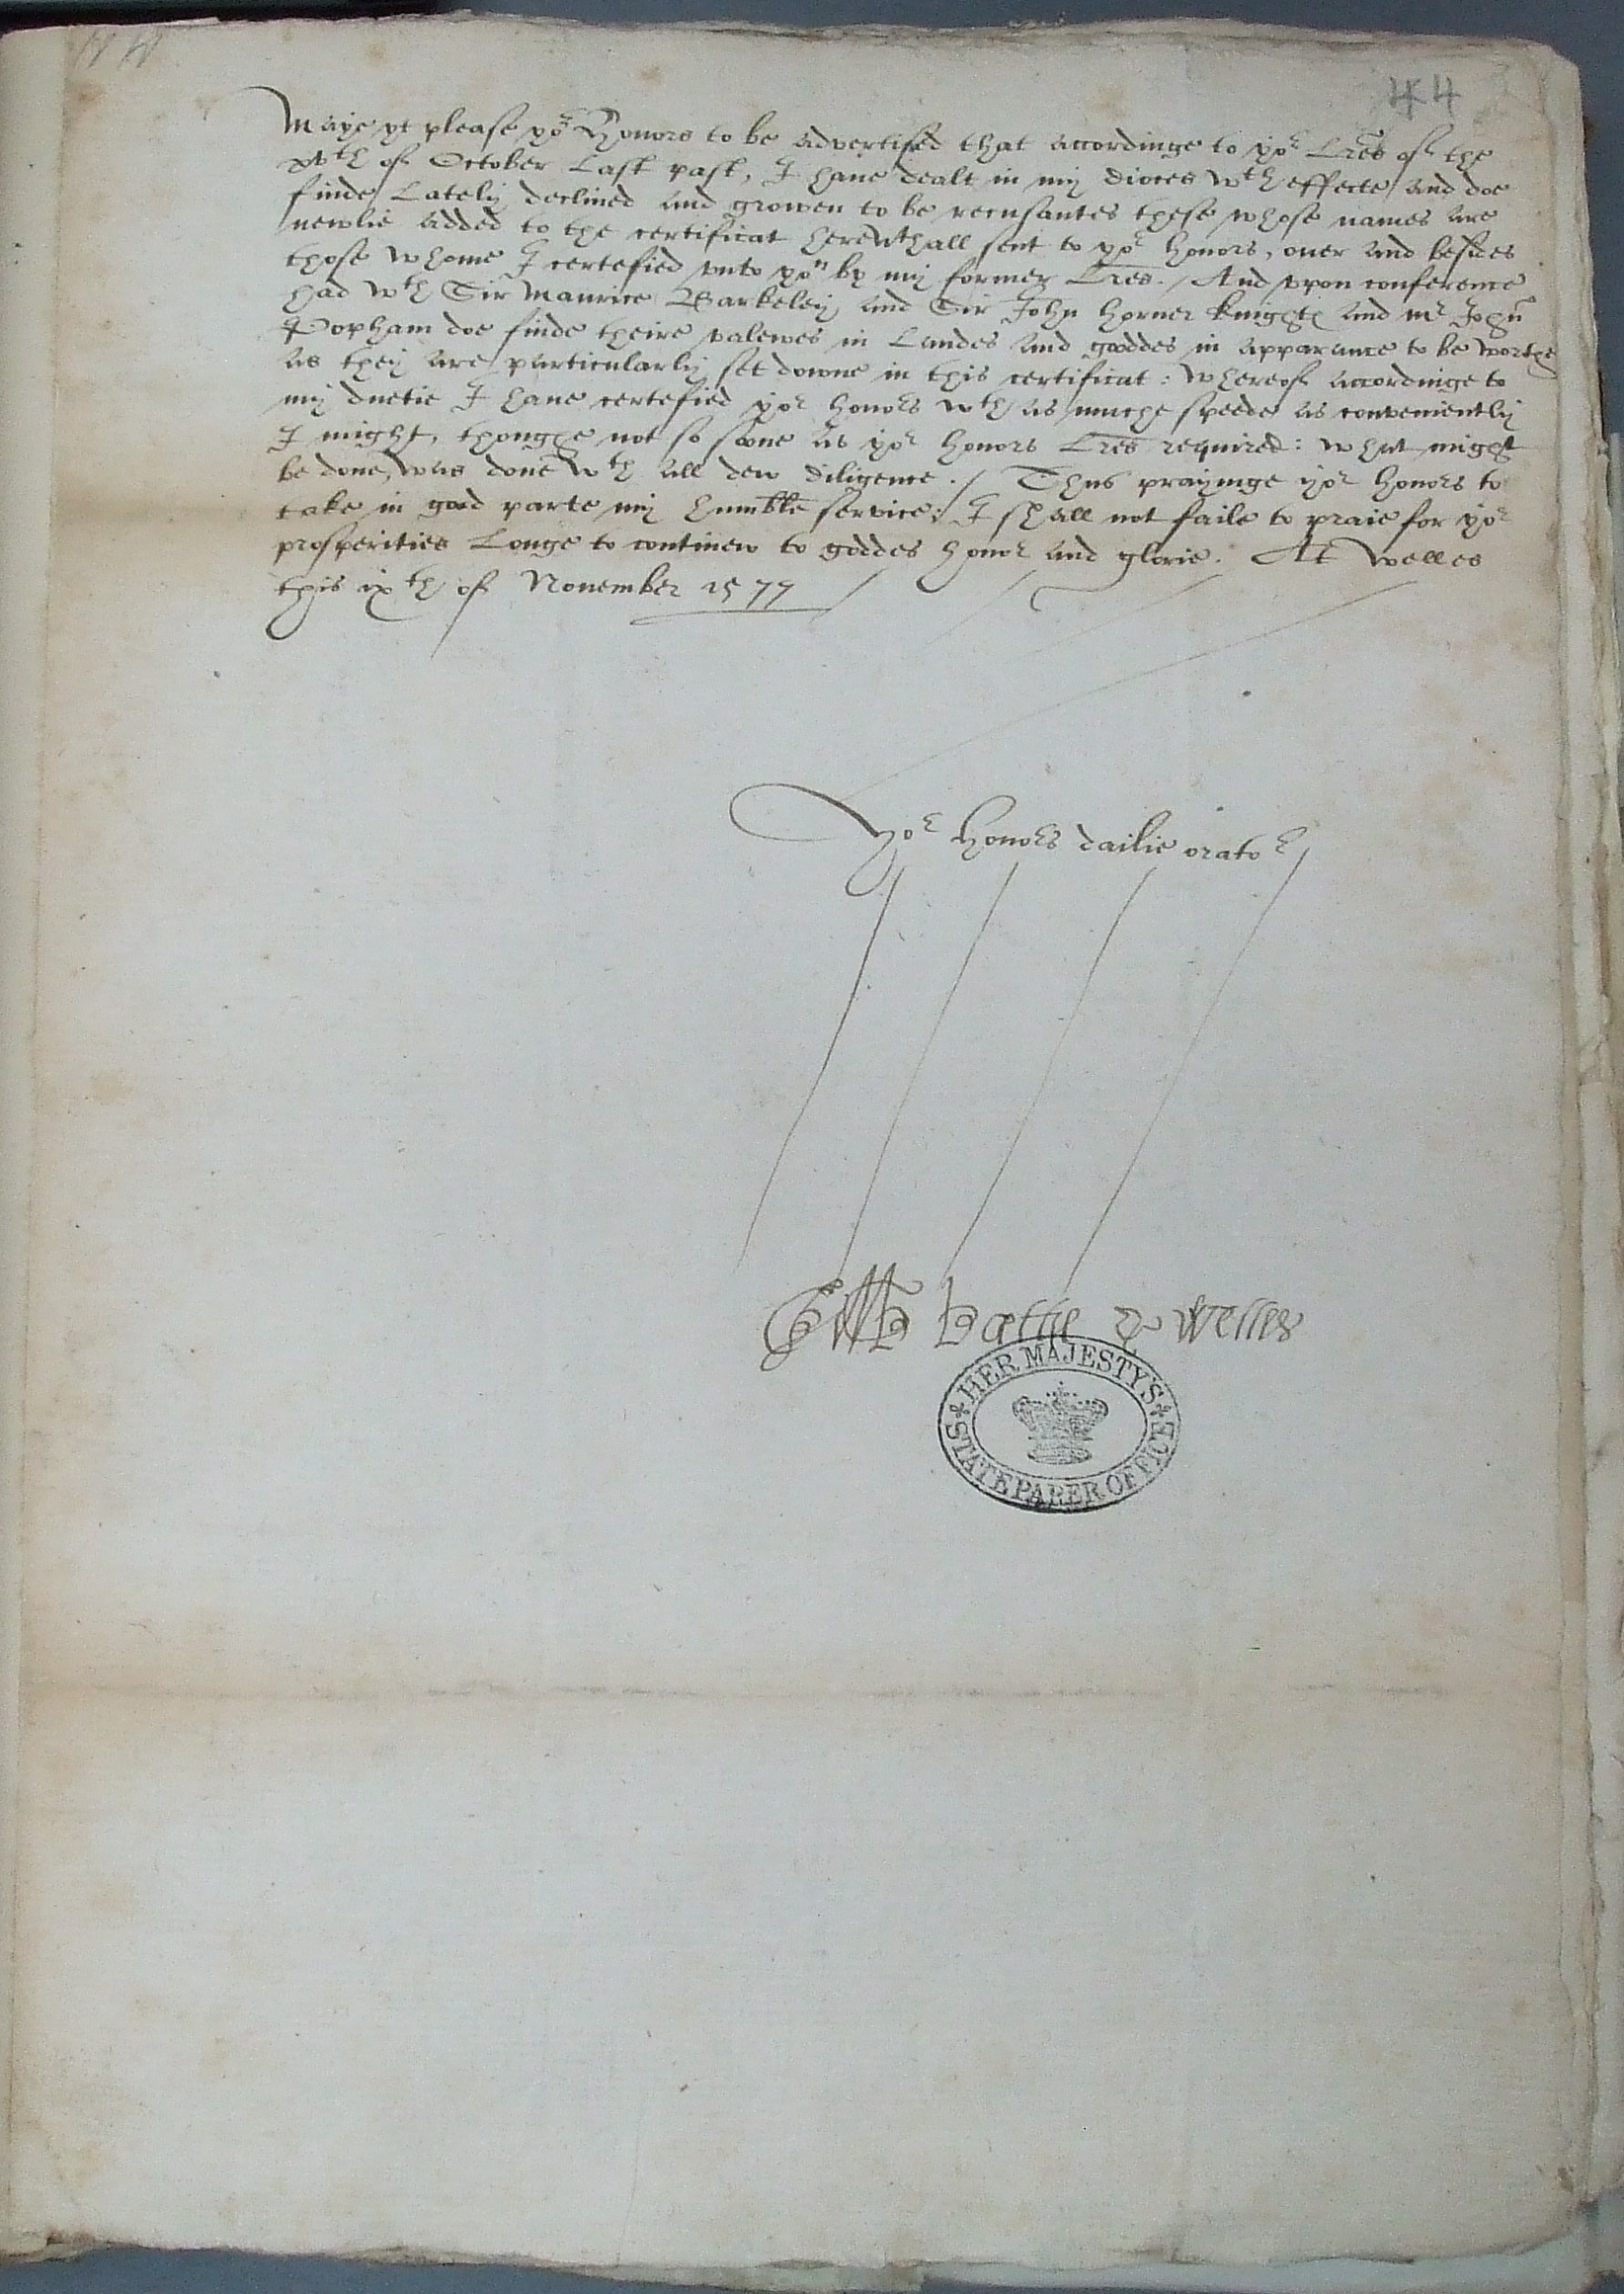 44
Maye yt please yor Honors to be advertised that accordinge to yor Lres of the
xvth of October Last past, I haue dealt in my dioces wth effecte and doe
finde Lately declined and growen to be recusantes these whose names are
newlie added to the certificat herewthall sent to yor honors, ouer and besides
those whome I certefied vnto you by my former Lres. / And vpon conference
had wth Sir Maurice Barkeley and Sir John Horner knightes and mr John
Popham doe finde theire valewes in Landes and gooddes in apparance to be worthe
as they are particularly set downe in this certificat : whereof accordinge to
my duetie I haue certefied yor honors wth as muche speede as conveniently
I might, thoughe not so soone as yor honors Lres required : what might
be done, was done wth all dew diligence . / Thus prayinge yor honors to
take in good parte my humble service ; I shall not faile to praie for yor
prosperities Longe to continew to goddes honor and glorie . At Welles
this ixth of Nouember 1577
yor honors dailie orator
Gilb bathe & welles
HER MAJESTY'S
STATE PAPER OFFICE